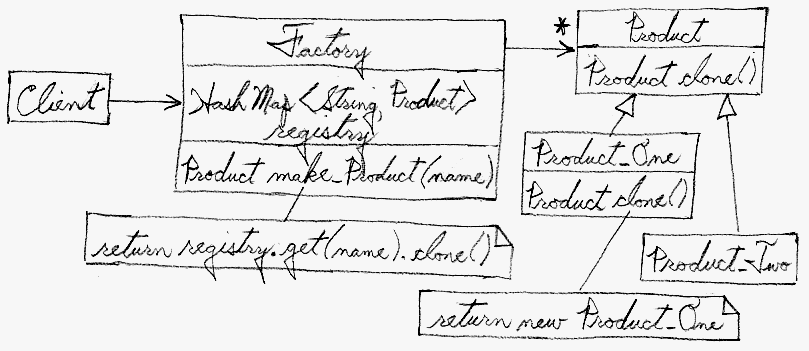 Client
Factory
HashMap <String, Product>
registry
Product make_Product(name)
return registry.get(name).clone()
*
Product
Product clone()
Product_One
Product clone()
Product_Two
return new Product_One